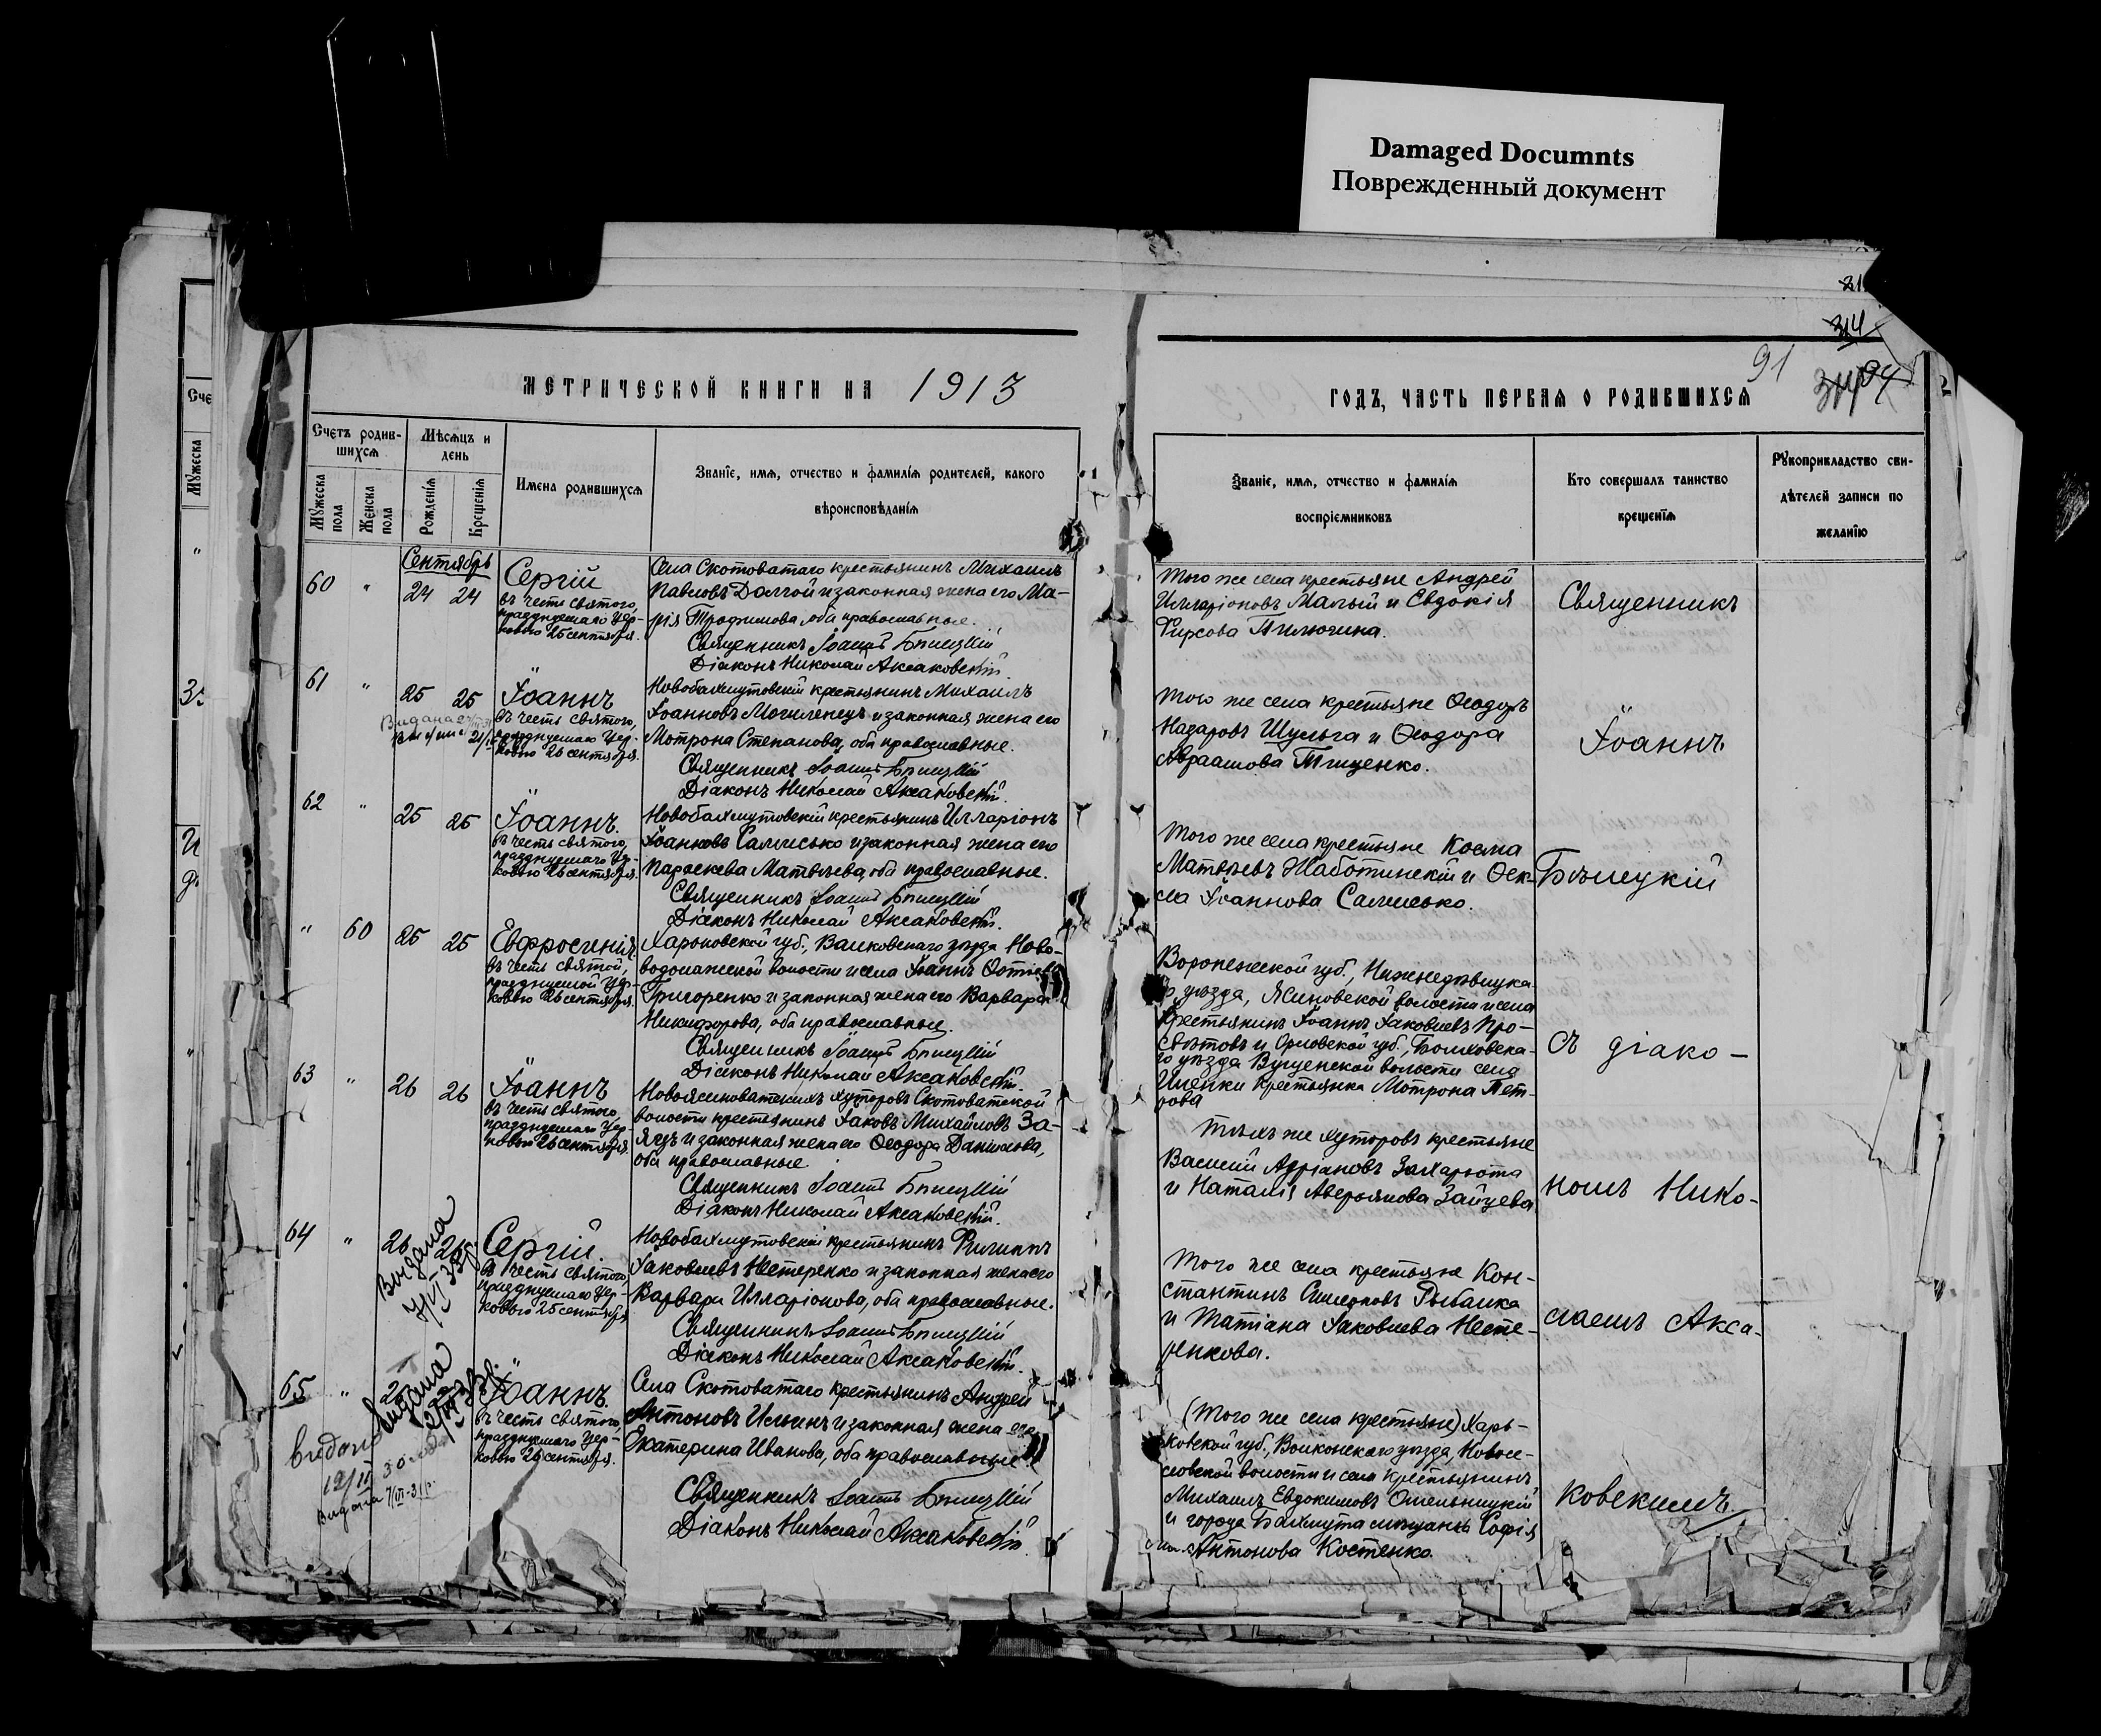 Damaged Documnts
Поврежденный документ
314
91
94
МЕТРИЧЕСКОЙ КНИГИ НА 1913
ГОДЪ, ЧАСТЬ ПЕРВАЯ О РОДИВШИХСЯ
Счетъ родив-
шихся
Мужеска
пола
Женска
пола
Мѣсяцъ и
день
Рожденія
Крещенія
Имена родившихся
Званіе, имя, отчество и фамилія родителей, какого
вѣроисповѣданія
Званіе, имя, отчество и фамилія
воспріемниковъ
Кто совершалъ таинство
крещенія
Рукоприкладство сви-
дѣтелей записи по
желанію
Сентябрь
60 " 24 24
Сергій
въ честь святого,
празднуемаго Цер-
ковью 25 сентября.
Села Скотоватаго крестьянинъ Михаилъ
Павловъ Долгой и законная жена его Ма-
рія Трофимова, оба православные.
Священникъ Іоаннъ Бѣлицкій
Діаконъ Николай Аксаковскій.
Того же села крестьяне Андрей
Илларіоновъ Малый и Евдокія
Фирсова Пилюгина.
Священникъ
61 " 25 25
Іоаннъ
въ честь святого,
празднуемаго Цер-
ковью 26 сентября.
Новобахмутовскій крестьянинъ Михаилъ
Іоанновъ Могиленецъ и законная жена его
Мотрона Степанова, оба православные.
Священникъ Іоаннъ Бѣлицкій
Діаконъ Николай Аксаковскій.
Того же села крестьяне Ѳеодоръ
Назаровъ Шульга и Ѳеодора
Авраамова Тищенко.
Іоаннъ
62 " 25 25
Іоаннъ.
въ честь святого,
празднуемаго Цер-
ковью 26 сентября.
Новобахмутовскій крестьянинъ Илларіонъ
Іоанновъ Самисько и законная жена его
Параскева Матвѣева, оба православные.
Священникъ Іоаннъ Бѣлицкій
Діаконъ Николай Аксаковскій.
Того же села крестьяне Косма
Матвѣевъ Жаботинскій и Ѳек-
ла Іоаннова Самисько.
Бѣлицкій
" 60 25 25
Евфросинія
въ честь святой,
празднуемой Цер-
ковью 25 сентября.
Харьковской губ., Валковскаго уѣзда Ново-
водолажской волости и села Іоаннъ
Григоренко и законная жена его Варвара
Никифорова, оба православные.
Священникъ Іоаннъ Бѣлицкій
Діаконъ Николай Аксаковскій.
Воронежской губ., Нижнедѣвицка-
го уѣзда, Ясиновской волости и села
крестьянинъ Іоаннъ Іаковлевъ Про-
свѣтовъ и Орловской губ., Болховска-
го уѣзда волости села
крестьянка Мотрона Пет-
рова
съ діако-
63 " 26 26
Іоаннъ
въ честь святого,
празднуемаго Цер-
ковью 26 сентября.
Новоясиноватскихъ хуторовъ Скотоватской
волости крестьянинъ Іаковъ Михайловъ За-
яцъ и законная жена его Ѳеодора Даніилова,
оба православные.
Священникъ Іоаннъ Бѣлицкій
Діаконъ Николай Аксаковскій.
Тѣхъ же хуторовъ крестьяне
Василій Адріановъ Захарюта
и Наталія Аверьянова Зайцева
номъ Нико-
64 " 26 26
Видана
Сергій.
въ честь святого,
празднуемаго Цер-
ковью 25 сентября
Новобахмутовскій крестьянинъ Филиппъ
Іаковлевъ Нестеренко и законная жена его
Варвара Илларіонова, оба православные.
Священникъ Іоаннъ Бѣлицкій
Діаконъ Николай Аксаковскій.
Того же села крестьяне Кон-
стантинъ Симеоновъ Рыбалка
и Татіана Іаковлева Несте-
ренкова.
лаемъ Акса-
65 "
Видана
Іоаннъ.
въ честь святого,
празднуемаго Цер-
ковью 26 сентября.
Села Скотоватаго крестьянинъ Андрей
Антоновъ Ильинъ и законная жена его
Екатерина Иванова, оба православные.
Священникъ Іоаннъ Бѣлицкій
Діаконъ Николай Аксаковскій.
(Того же села крестьяне) Харь-
ковской губ., уѣзда, Новосе-
ловской волости и села крестьянинъ
Михаилъ Евдокимовъ Омельницкій
и города Бахмута мѣщанка Софія
Антонова Костенко.
ковскимъ